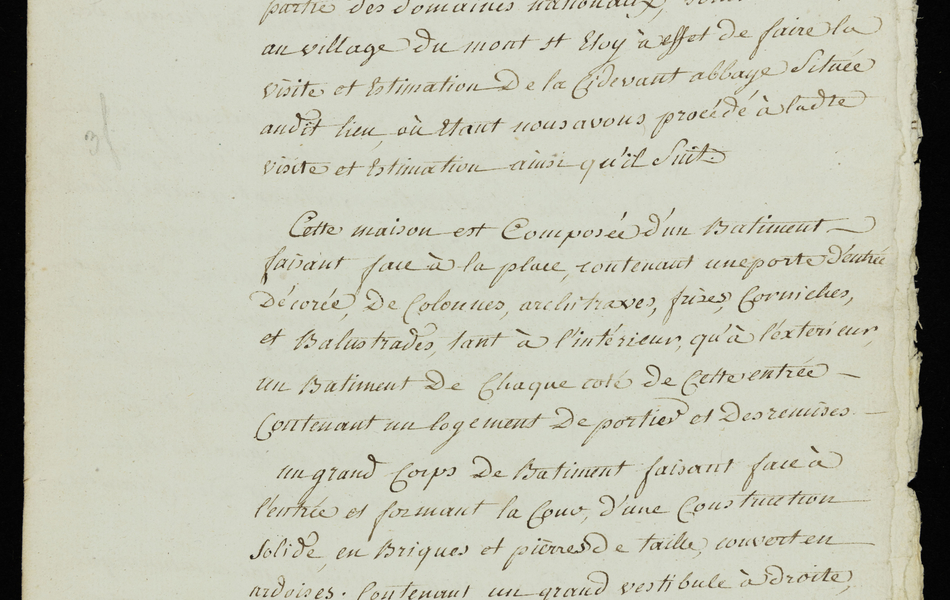 partie des domaines nationaux,
au village du mont st Eloy à effet de faire la
visite et Estimation De la Cidevant abbaye Située
audit lieu, où Etant nous avons procédé à ladte
visite et Estimation ainsi qu'il Suit.
3/
Cette maison est Composée d'un Batiment
faisant face à la place, contenant une porte d'entrée
Décorée, De Colonnes, architraves, frises, Corniches,
et Balustrades, tant à l'intérieur, qu'à l'exterieur,
un Batiment De Chaque coté de Cette entrée
Contenant un logement De portier et Des remises
un grand Corps De Batiment faisant face à
l'entrée et formant la Cour, d'une Construction
Solide, en Briques et pierres de taille, couvert en
ardoises. Contenant un grand vestibule à droite,